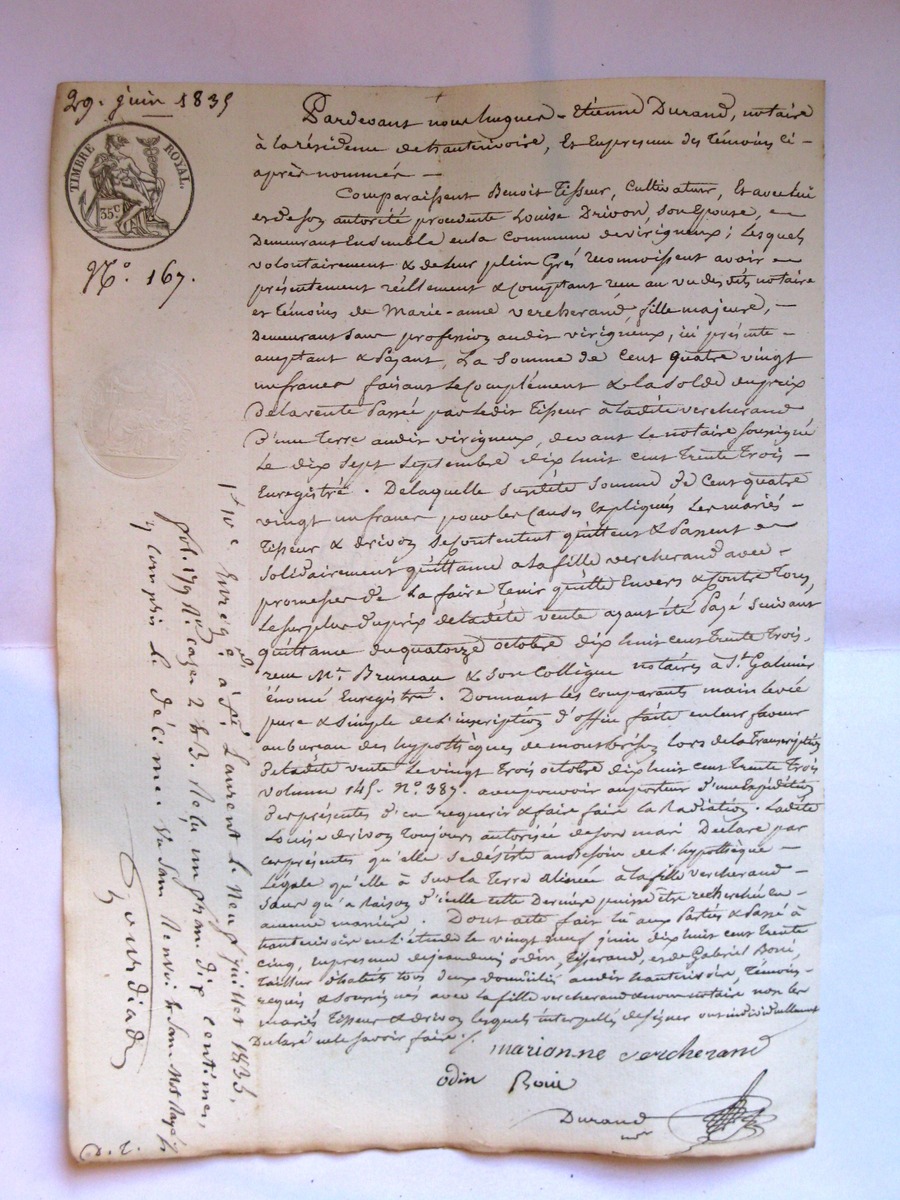 29. juin 1835
TIMBRE ROYAL
35 c
N.o 167.
Pardevant nous hugues-Etienne Durand, notaire
à la résidence de hauterivoire, Et En presence des Témoins ci-
après nommés
Comparaissent Benoit Tisseur, Cultivateur, Et avec lui
et de son autorité procedente Louise Drivon, son Epouse,
Demeurant Ensemble en la Commune de virigneux; lesquels
volontairement & de leur plein Gré, reconnoissent avoir
présentement réellement & comptant reçu au vu desdits notaire
et Témoins de Marie-anne vercherand, fille majeure,
Demeurant sans profession audit virigneux, ici présente
acceptant & payant, La Somme de Cent quatre vingt
un francs faisant le Complément & la solde du prix
De la vente Passée par ledit Tisseur à ladite vercherand
D'une Terre audit virigneux, devant le notaire soussigné
Le dix sept septembre dix huit cent trente trois
Enregistré. De laquelle susdite somme de Cent quatre
vingt un francs pour les causes Expliquées les mariés
Tisseur & drivon se contentent quittent & passent
solidairement quittance à la fille vercherand avec
promesse de La faire Tenir quitte Envers & Contre Tous,
Le surplus du prix de ladite vente ayant été Payé suivant
quittance du quatorze octobre dix huit cent trente Trois,
reçue M.e Bruneau & son Collègue notaires à S.t Galmier
énoncé Enregistré. Donnant les Comparants main levée
pure & simple de l'inscription d'office faite en leur faveur
au bureau des hypothèques de montbrison lors de la Transcription
de ladite vente le vingt Trois octobre dix huit cent Trente Trois
volume 145. N.o 387. avec pouvoir au porteur d'une Expédition
des présentes d'en requerir & faire faire la Radiation. Ladite
Louise drivon Toujours autorisée de son mari Déclare par
ces présentes qu'elle se désiste au Besoin de l'hypothèque
Légale qu'elle à sur la Terre alienée à la fille vercherand
sans qu'à raison d'icelle cette Dernière puisse être recherchée en
aucune manière. Dont acte fait lû aux Parties & Passé à
hauterivoire en l'étude le vingt neuf juin dix huit cent Trente
Cinq, En presence de odin, Tisserand, et de Gabriel Boué,
Tailleur d'habits tous deux domiciliés audit hauterivoire, Témoins
requis & soussignés avec la fille vercherand & nous notaire non les
mariés Tisseur & drivon lesquels interpellés de signer ont individuellement
Déclaré ne le savoir faire.
marionne vercherand
odin Boué
Durand
Enreg.é à S.t Laurent le Neuf juillet 1835,
fol. 179 R.o Cases 2 & 3. Reçu un franc dix centimes,
y compris le décime. Sans Renvoi & Sans Mot Rayé
Gourdiad
D. E.